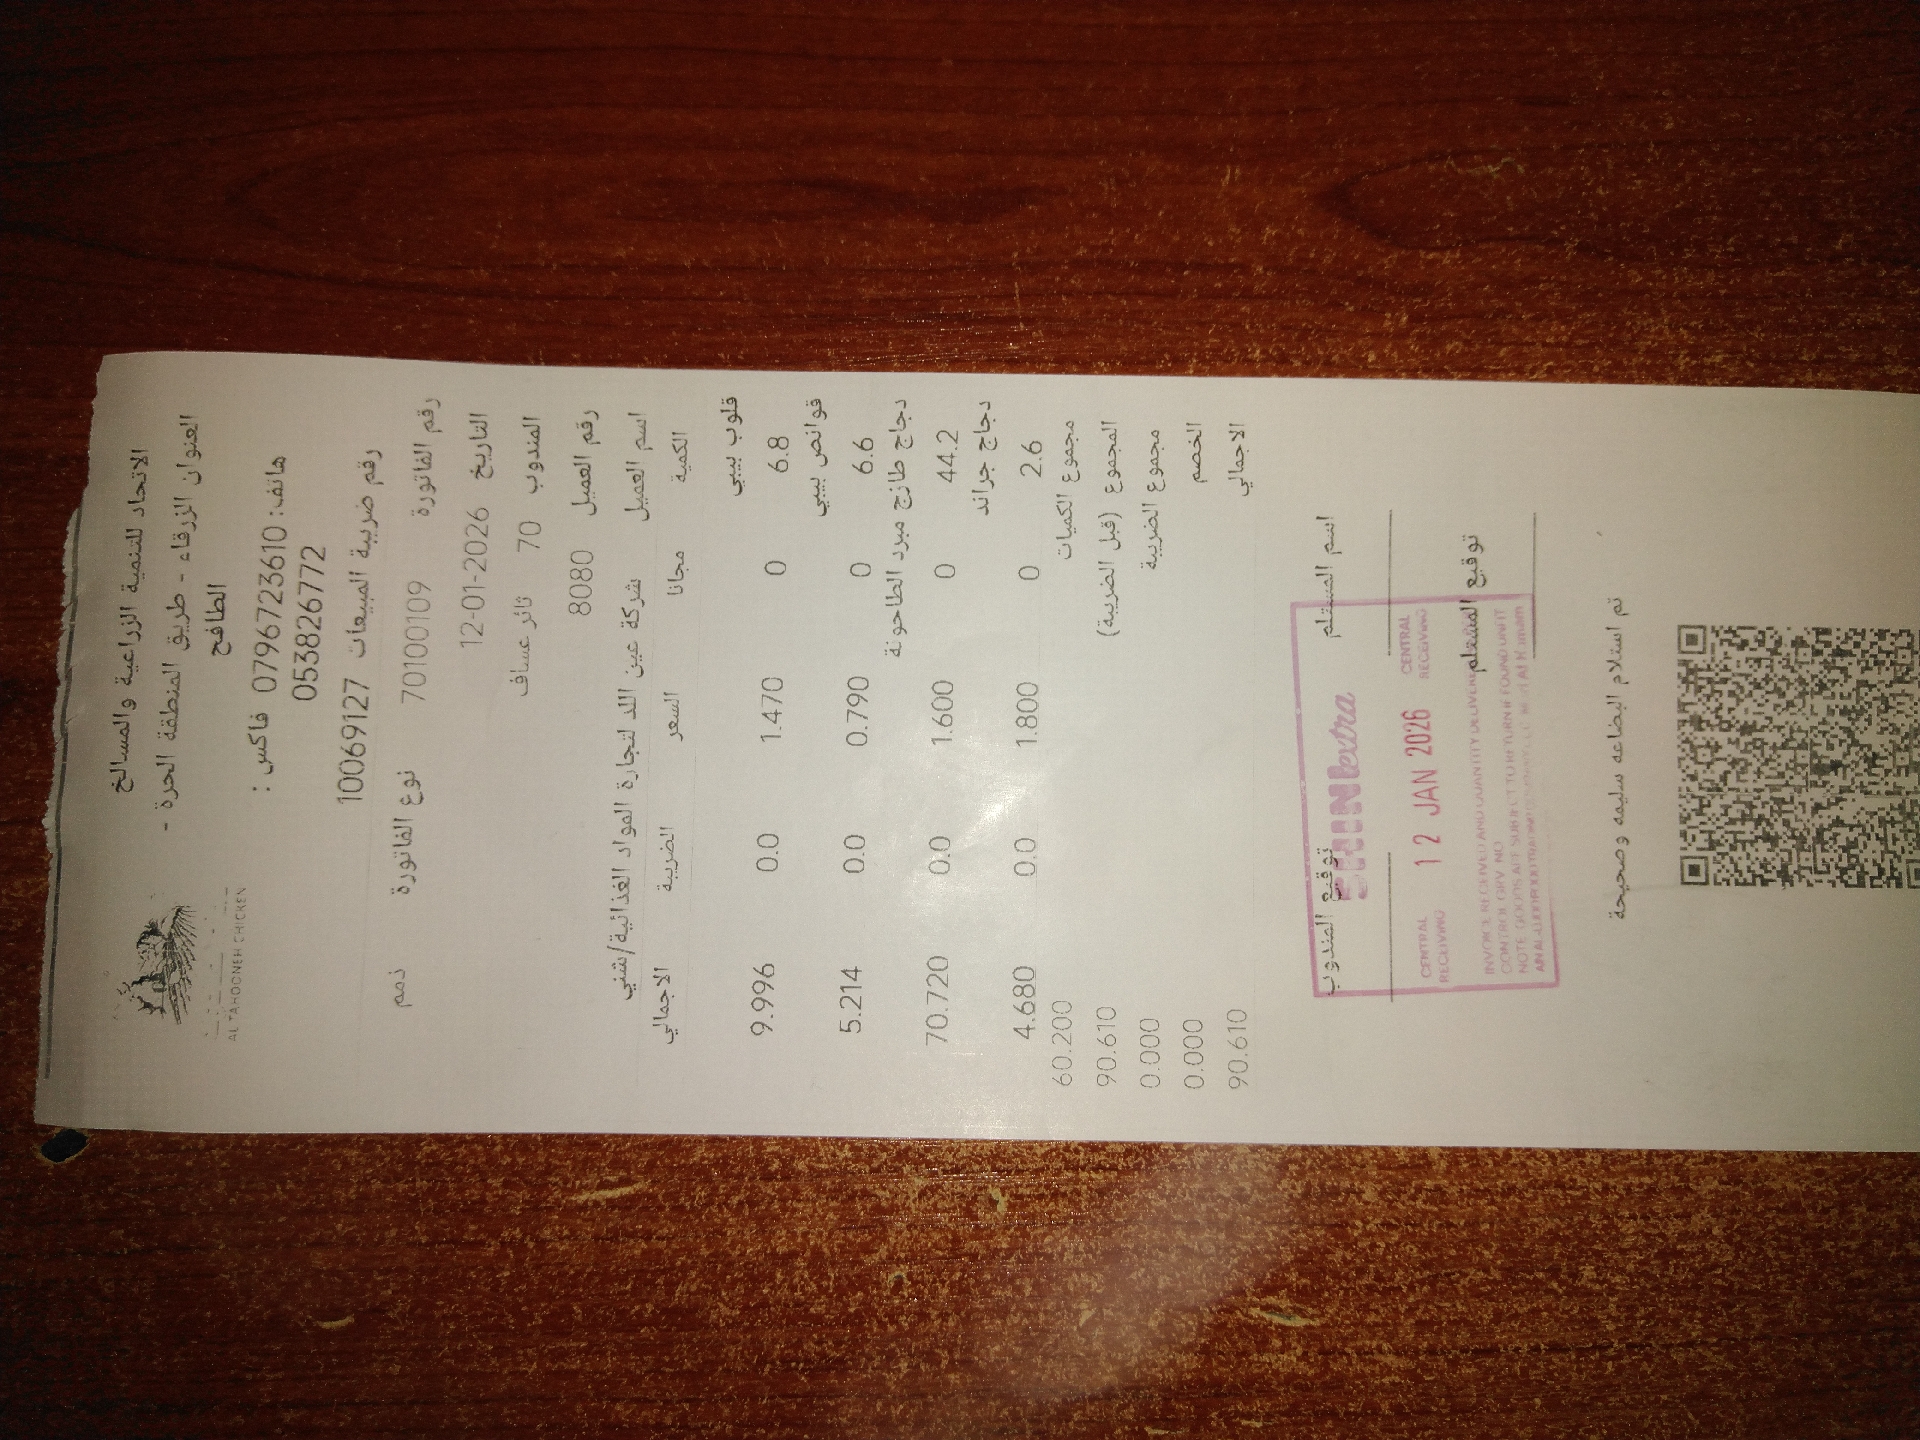 AL TAHOONEH CHICKEN
الاتحاد للتنمية الزراعية والمسالخ
العنوان الزرقاء - طريق المنطقة الحرة -
الطافح
هاتف: 0796723610 فاكس :
053826772
رقم ضريبة المبيعات 10069127
رقم الفاتورة 70100109 نوع الفاتورة ذمم
التاريخ 12-01-2026
المندوب 70 ثائر عساف
رقم العميل 8080
اسم العميل شركة عين الد لتجارة المواد الغذائية/شني
الكمية مجانا السعر الضريبة الاجمالي
قلوب بيبي
6.8 0 1.470 0.0 9.996
قوانص بيبي
6.6 0 0.790 0.0 5.214
دجاج طازج مبرد الطاحونة
44.2 0 1.600 0.0 70.720
دجاج جراند
2.6 0 1.800 0.0 4.680
مجموع الكميات 60.200
المجموع (قبل الضريبة) 90.610
مجموع الضريبة 0.000
الخصم 0.000
الاجمالي 90.610
اسم المستلم توقيع المندوب
extra
CENTRAL RECEIVING 12 JAN 2026 CENTRAL RECEIVING
توقيع المستلم
INVOICE RECEIVED AND QUANTITY DELIVERED
CONTROL GRV NO
NOTE GOODS ARE SUBJECT TO RETURN IF FOUND UNFIT
تم استلام البضاعه سليمه وصحيحة